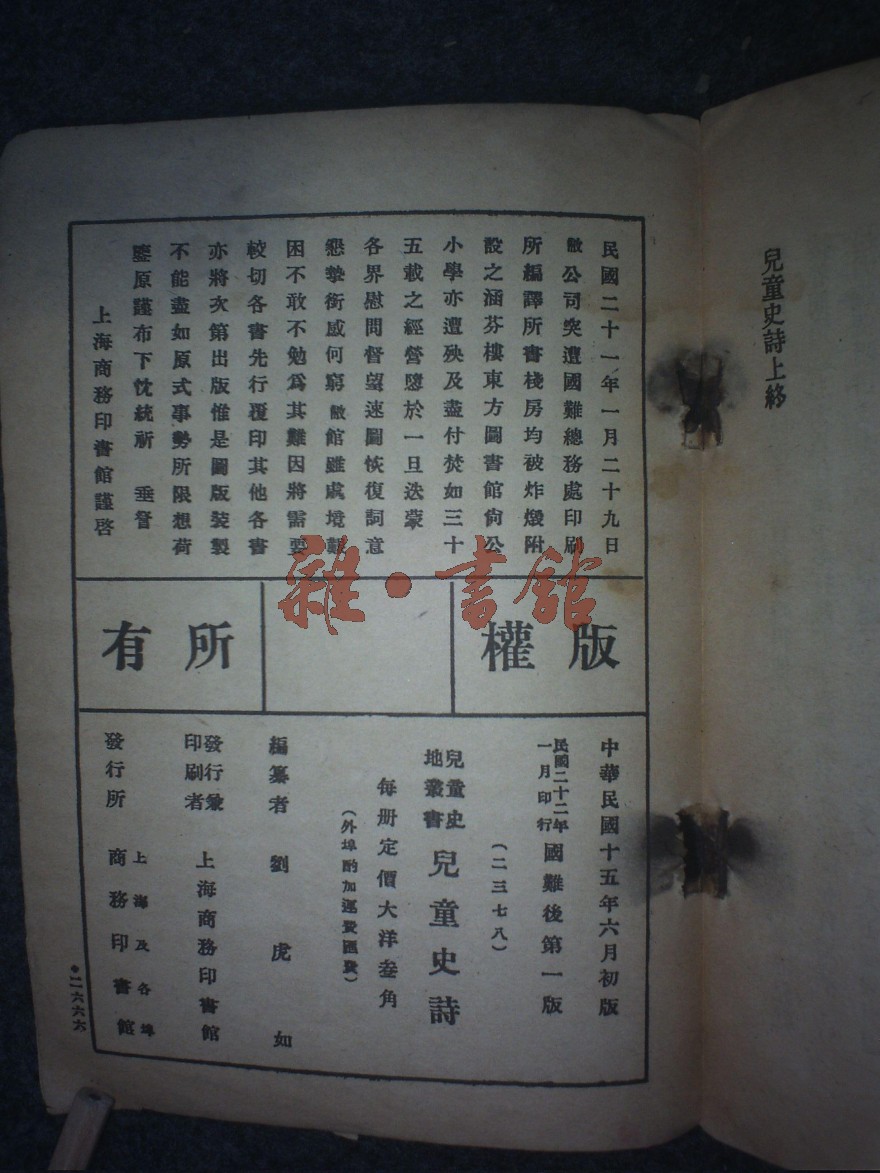 兒童史詩上終
民國二十一年一月二十九日
敝公司突遭國難總務處印刷
所編譯所書棧房均被炸燬附
設之涵芬樓東方圖書館尙公
小學亦遭殃及盡付焚如三十
五載之經營隳於一旦迭蒙
各界慰問督望速圖恢復詞意
懇摯銜感何窮敝館雖處境艱
困不敢不勉爲其難因將需要
較切各書先行覆印其他各書
亦將次第出版惟是圖版裝製
不能盡如原式事勢所限想荷
鑒原謹布下忱統祈 垂詧
上海商務印書館謹啓
版權所有
中華民國十五年六月初版
民國二十二年一月印行國難後第一版
(二三七八)
兒童史地叢書 兒童史詩
每册定價大洋叁角
(外埠酌加運費匯費)
編纂者 劉虎如
發行兼印刷者 上海商務印書館
發行所 上海及各埠 商務印書館
二六六六
雜·書館